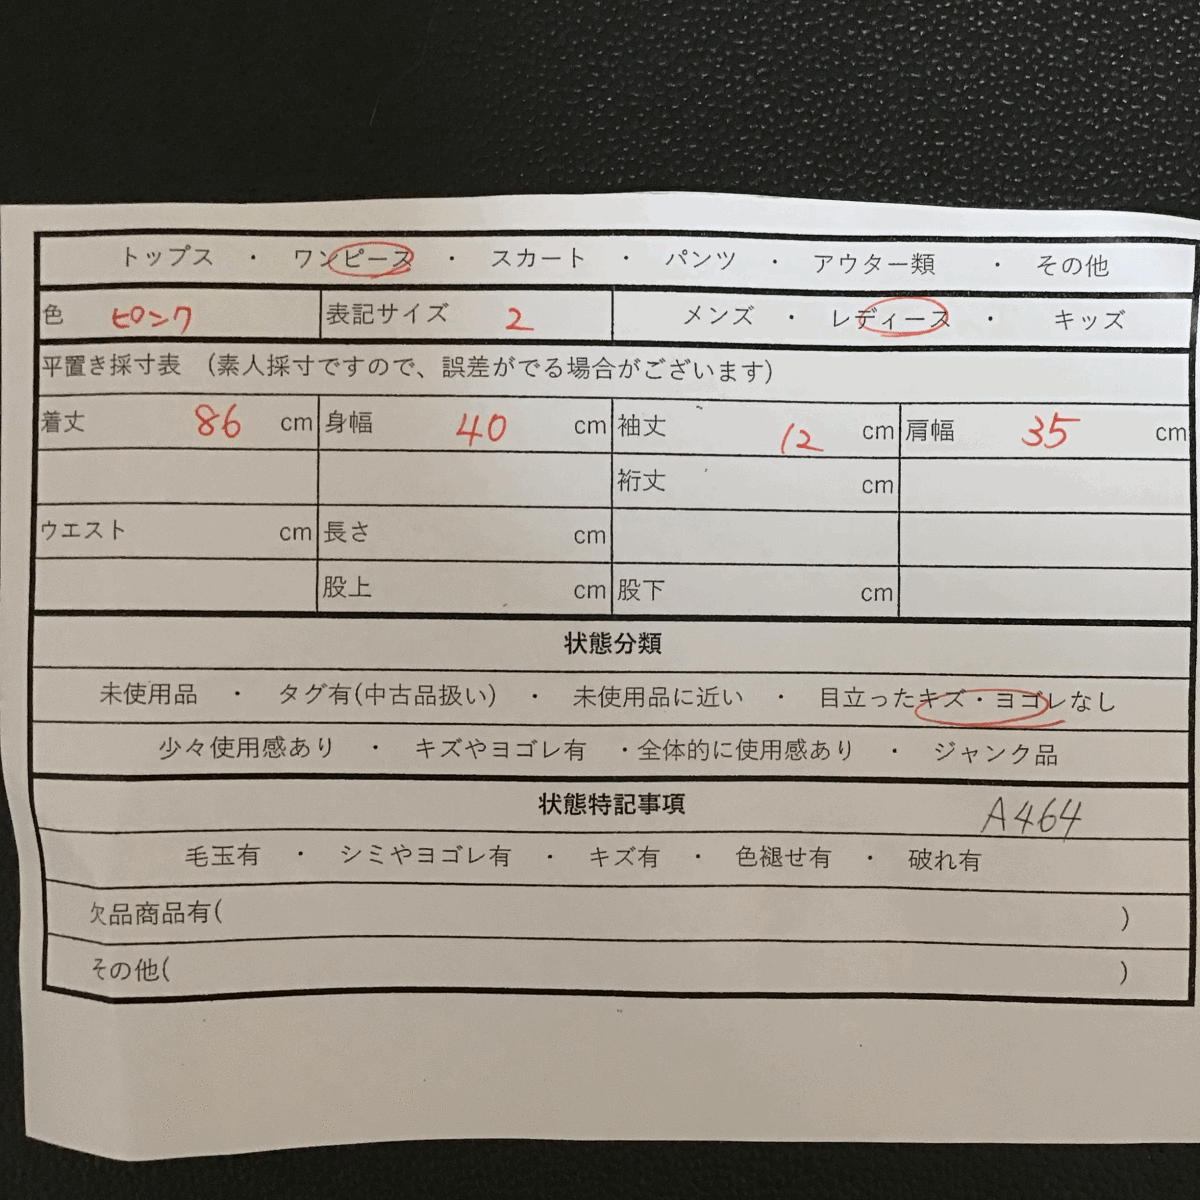 トップス ・ ワンピース ・ スカート ・ パンツ ・ アウター類 ・ その他
色 ピンク 表記サイズ 2 メンズ ・ レディース ・ キッズ
平置き採寸表 (素人採寸ですので、誤差がでる場合がございます)
着丈 86 cm 身幅 40 cm 袖丈 12 cm 肩幅 35 cm
裄丈 cm
ウエスト cm 長さ cm
股上 cm 股下 cm
状態分類
未使用品 ・ タグ有(中古品扱い) ・ 未使用品に近い ・ 目立ったキズ・ヨゴレなし
少々使用感あり ・ キズやヨゴレ有 ・全体的に使用感あり ・ ジャンク品
状態特記事項 A464
毛玉有 ・ シミやヨゴレ有 ・ キズ有 ・ 色褪せ有 ・ 破れ有
欠品商品有( )
その他( )